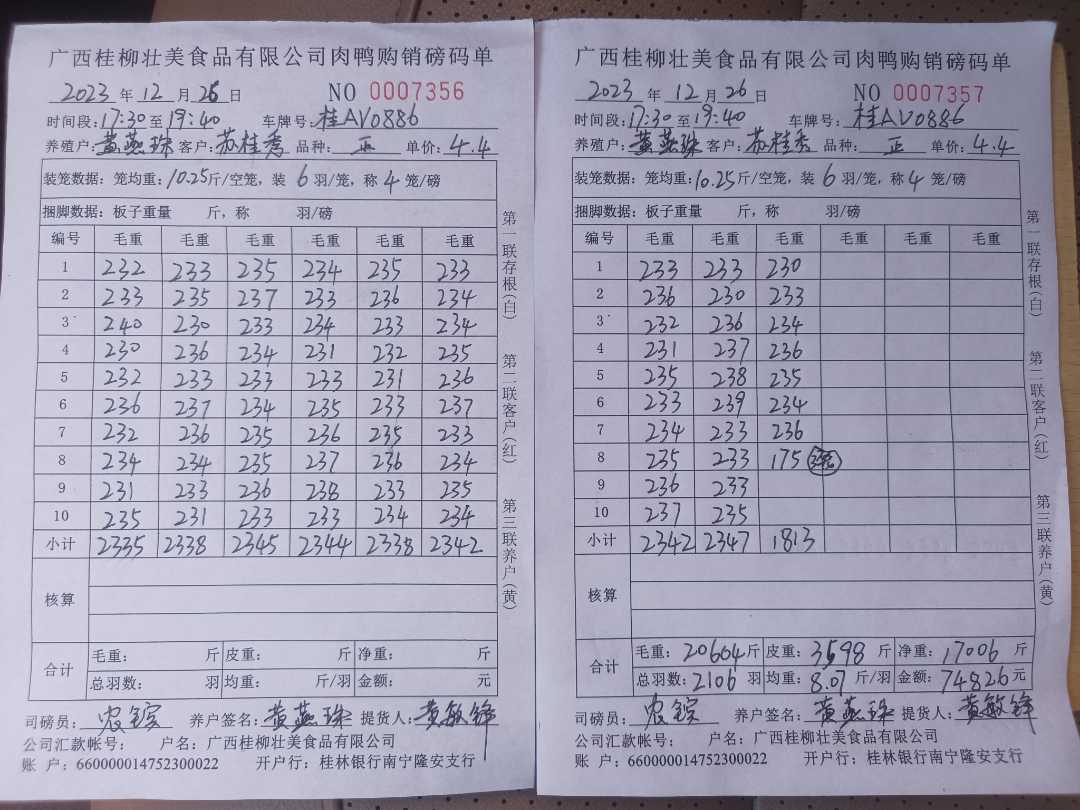 广西桂柳壮美食品有限公司肉鸭购销磅码单
2023 年 12 月 26 日 NO 0007356
时间段: 17:30 至 19:40 车牌号: 桂AV0886
养殖户: 黄燕珠 客户: 苏桂秀 品种: 正 单价: 4.4
装笼数据: 笼均重: 10.25 斤/空笼, 装 6 羽/笼, 称 4 笼/磅
捆脚数据: 板子重量 斤, 称 羽/磅
编号 毛重 毛重 毛重 毛重 毛重 毛重
1 232 233 235 234 235 233
2 233 235 237 233 236 234
3 240 230 233 234 233 234
4 230 236 234 231 232 235
5 232 233 233 233 231 236
6 236 237 234 235 233 237
7 232 236 235 236 235 233
8 234 234 235 237 236 234
9 231 233 236 238 233 235
10 235 231 233 233 234 234
小计 2335 2338 2345 2344 2338 2342
核算
合计 毛重: 斤 皮重: 斤 净重: 斤
总羽数: 羽 均重: 斤/羽 金额: 元
司磅员: 养户签名: 黄燕珠 提货人: 黄敏锋
公司汇款帐号: 户名: 广西桂柳壮美食品有限公司
账 户: 660000014752300022 开户行: 桂林银行南宁隆安支行
第一联存根(白) 第二联客户(红) 第三联养户(黄)
广西桂柳壮美食品有限公司肉鸭购销磅码单
2023 年 12 月 26 日 NO 0007357
时间段: 17:30 至 19:40 车牌号: 桂AV0886
养殖户: 黄燕珠 客户: 苏桂秀 品种: 正 单价: 4.4
装笼数据: 笼均重: 10.25 斤/空笼, 装 6 羽/笼, 称 4 笼/磅
捆脚数据: 板子重量 斤, 称 羽/磅
编号 毛重 毛重 毛重 毛重 毛重 毛重
1 233 233 230
2 236 230 233
3 232 236 234
4 231 237 236
5 235 238 235
6 233 239 234
7 234 233 236
8 235 233 175
9 236 233
10 237 235
小计 2342 2347 1813
核算
合计 毛重: 20604 斤 皮重: 3598 斤 净重: 17006 斤
总羽数: 2106 羽 均重: 8.07 斤/羽 金额: 74826 元
司磅员: 养户签名: 黄燕珠 提货人: 黄敏锋
公司汇款帐号: 户名: 广西桂柳壮美食品有限公司
账 户: 660000014752300022 开户行: 桂林银行南宁隆安支行
第一联存根(白) 第二联客户(红) 第三联养户(黄)